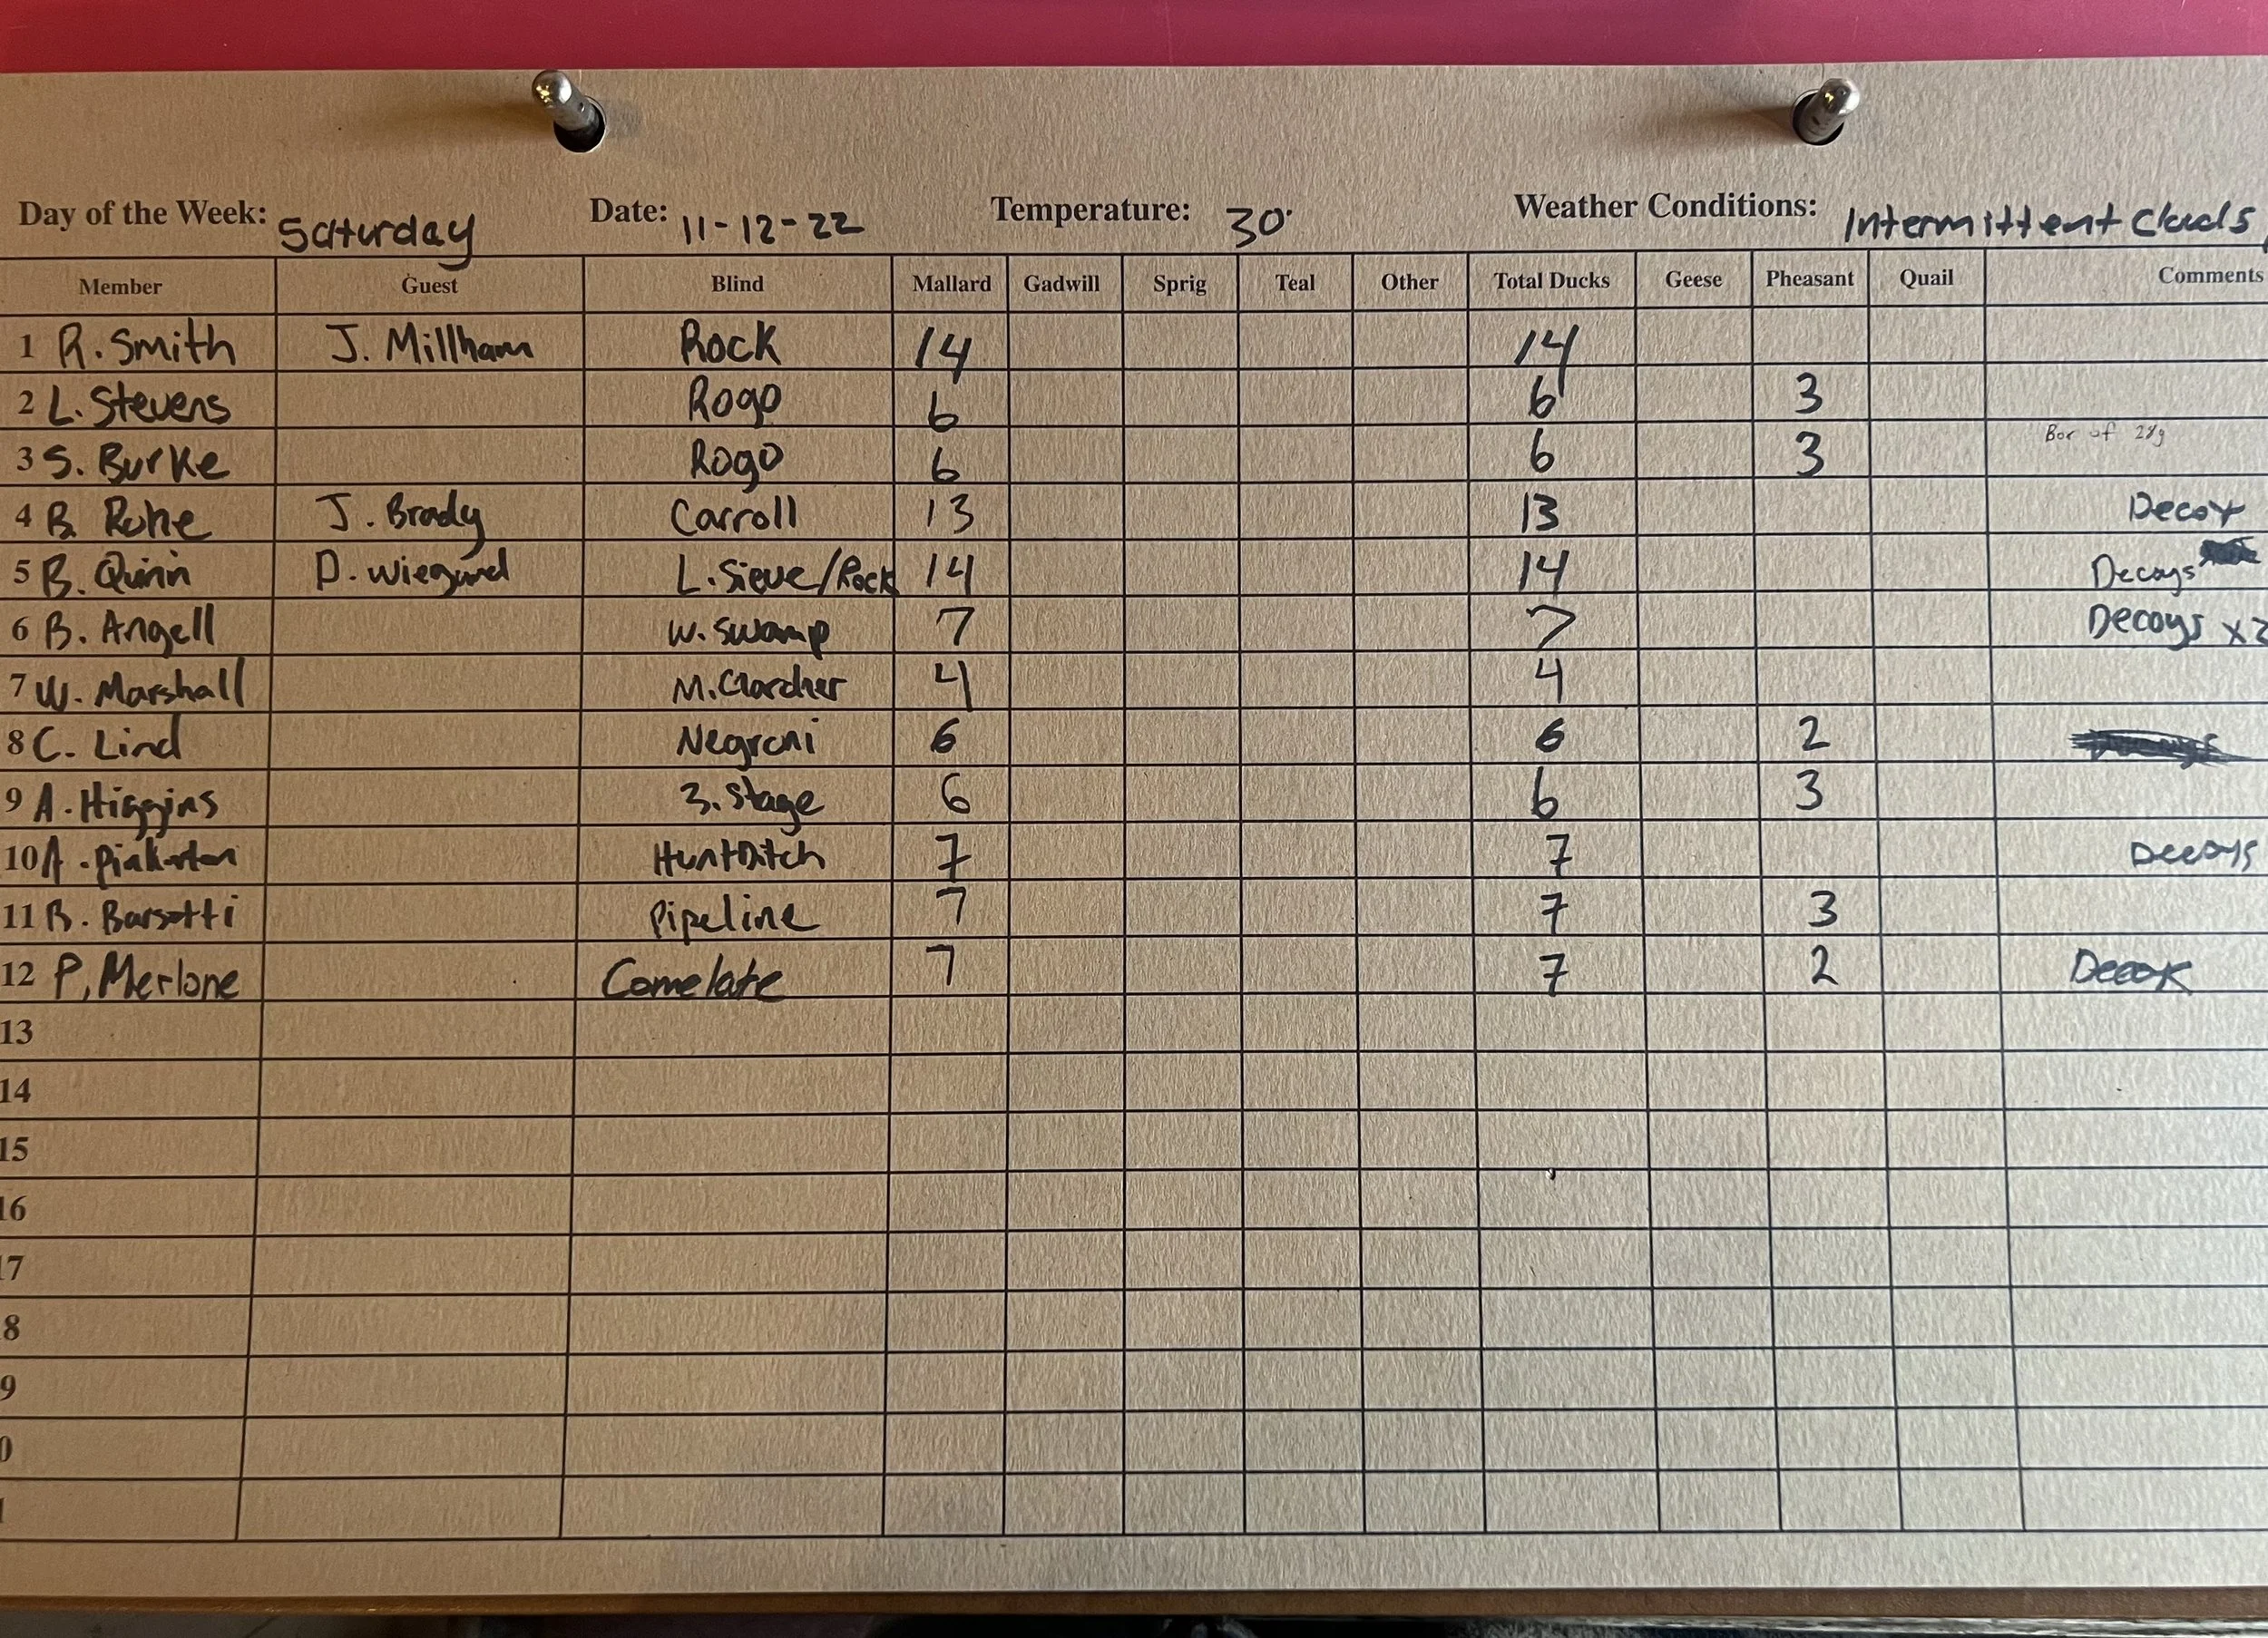 Day of the Week: Saturday Date: 11-12-22 Temperature: 30° Weather Conditions: Intermittent Clouds,
Member Guest Blind Mallard Gadwill Sprig Teal Other Total Ducks Geese Pheasant Quail Comments
1 R. Smith J. Millham Rock 14 14
2 L. Stevens Rogo 6 6 3
3 S. Burke Rogo 6 6 3 of 28g
4 B. J. Brady Carroll 13 13 Decoy
5 B. Quinn D. Wiegand L. Sieve/Rock 14 14 Decoys
6 B. Angell W. Swamp 7 7 Decoys
7 W. Marshall 4 4
8 C. Lind Negroni 6 6 2
9 A. Higgins 3. Stage 6 6 3
10 A. Pinkerton HuntDitch 7 7 Decoys
11 B. Barsotti Pipeline 7 7 3
12 P. Merlone Comelate 7 7 2
13
14
15
16
17
8
9
0
1